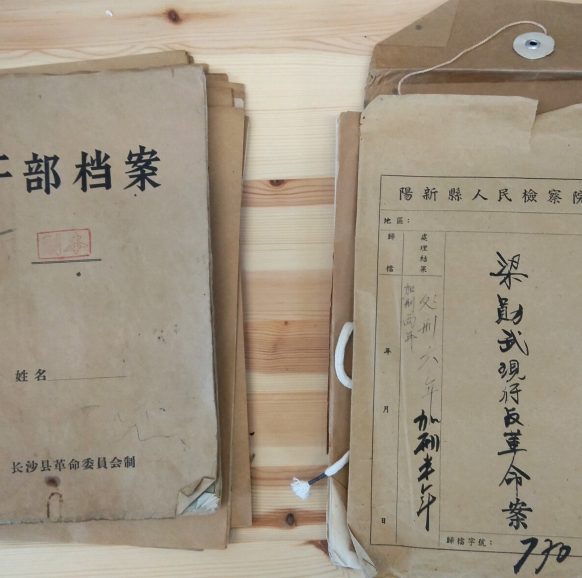 干部档案
姓名
长沙县革命委员会制
陽新縣人民檢察院
地區：
歸檔 年 月 日
處理結果
处刑六年
加刑两年
加刑半年
梁勛武現行反革命案
歸檔字號：
730